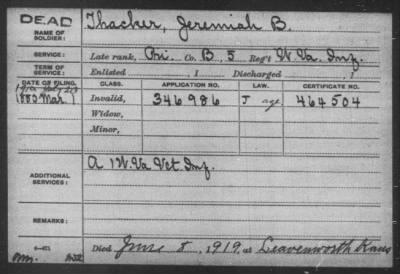 DEAD
NAME OF SOLDIER: Thacker, Jeremiah B.
SERVICE: Late rank, Pri. Co. B, 5 Reg't W. Va. Inf.
TERM OF SERVICE: Enlisted , 1 Discharged , 1
DATE OF FILING. CLASS. APPLICATION NO. LAW. CERTIFICATE NO.
1880 Mar. 1 Invalid, 346986 J age 464504
Widow,
Minor,
ADDITIONAL SERVICES: A 1 W. Va Vet Inf.
REMARKS:
Died June 8, 1919, at Leavenworth Kans